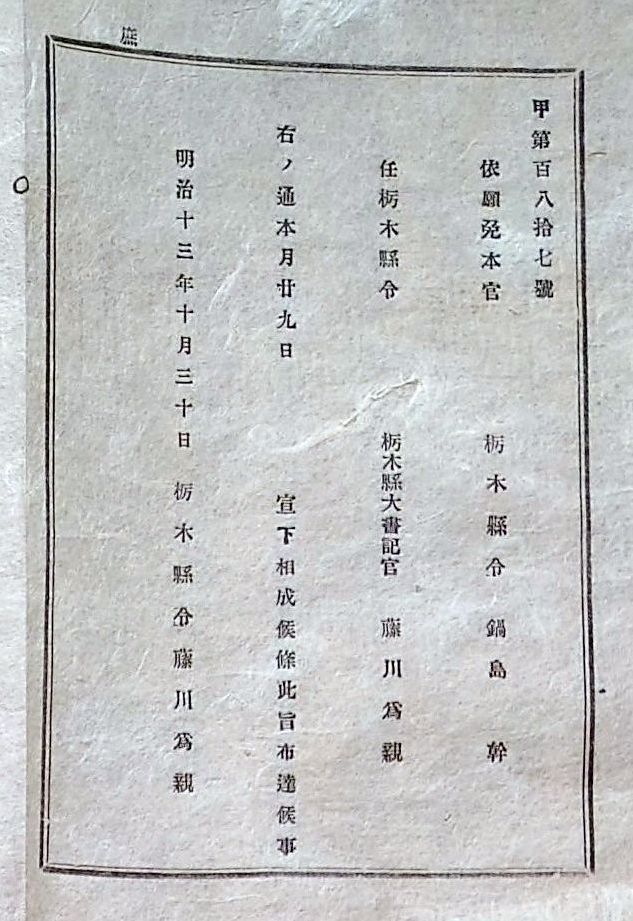 庶
甲第百八拾七號
依願免本官 栃木縣令 鍋島 幹
任栃木縣令 栃木縣大書記官 藤川爲親
右ノ通本月廿九日 宣下相成候條此旨布達候事
明治十三年十月三十日 栃木縣令藤川爲親